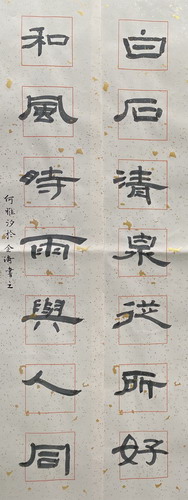 白石清泉從所好
和風時雨與人同
何雅汐於金濤書之